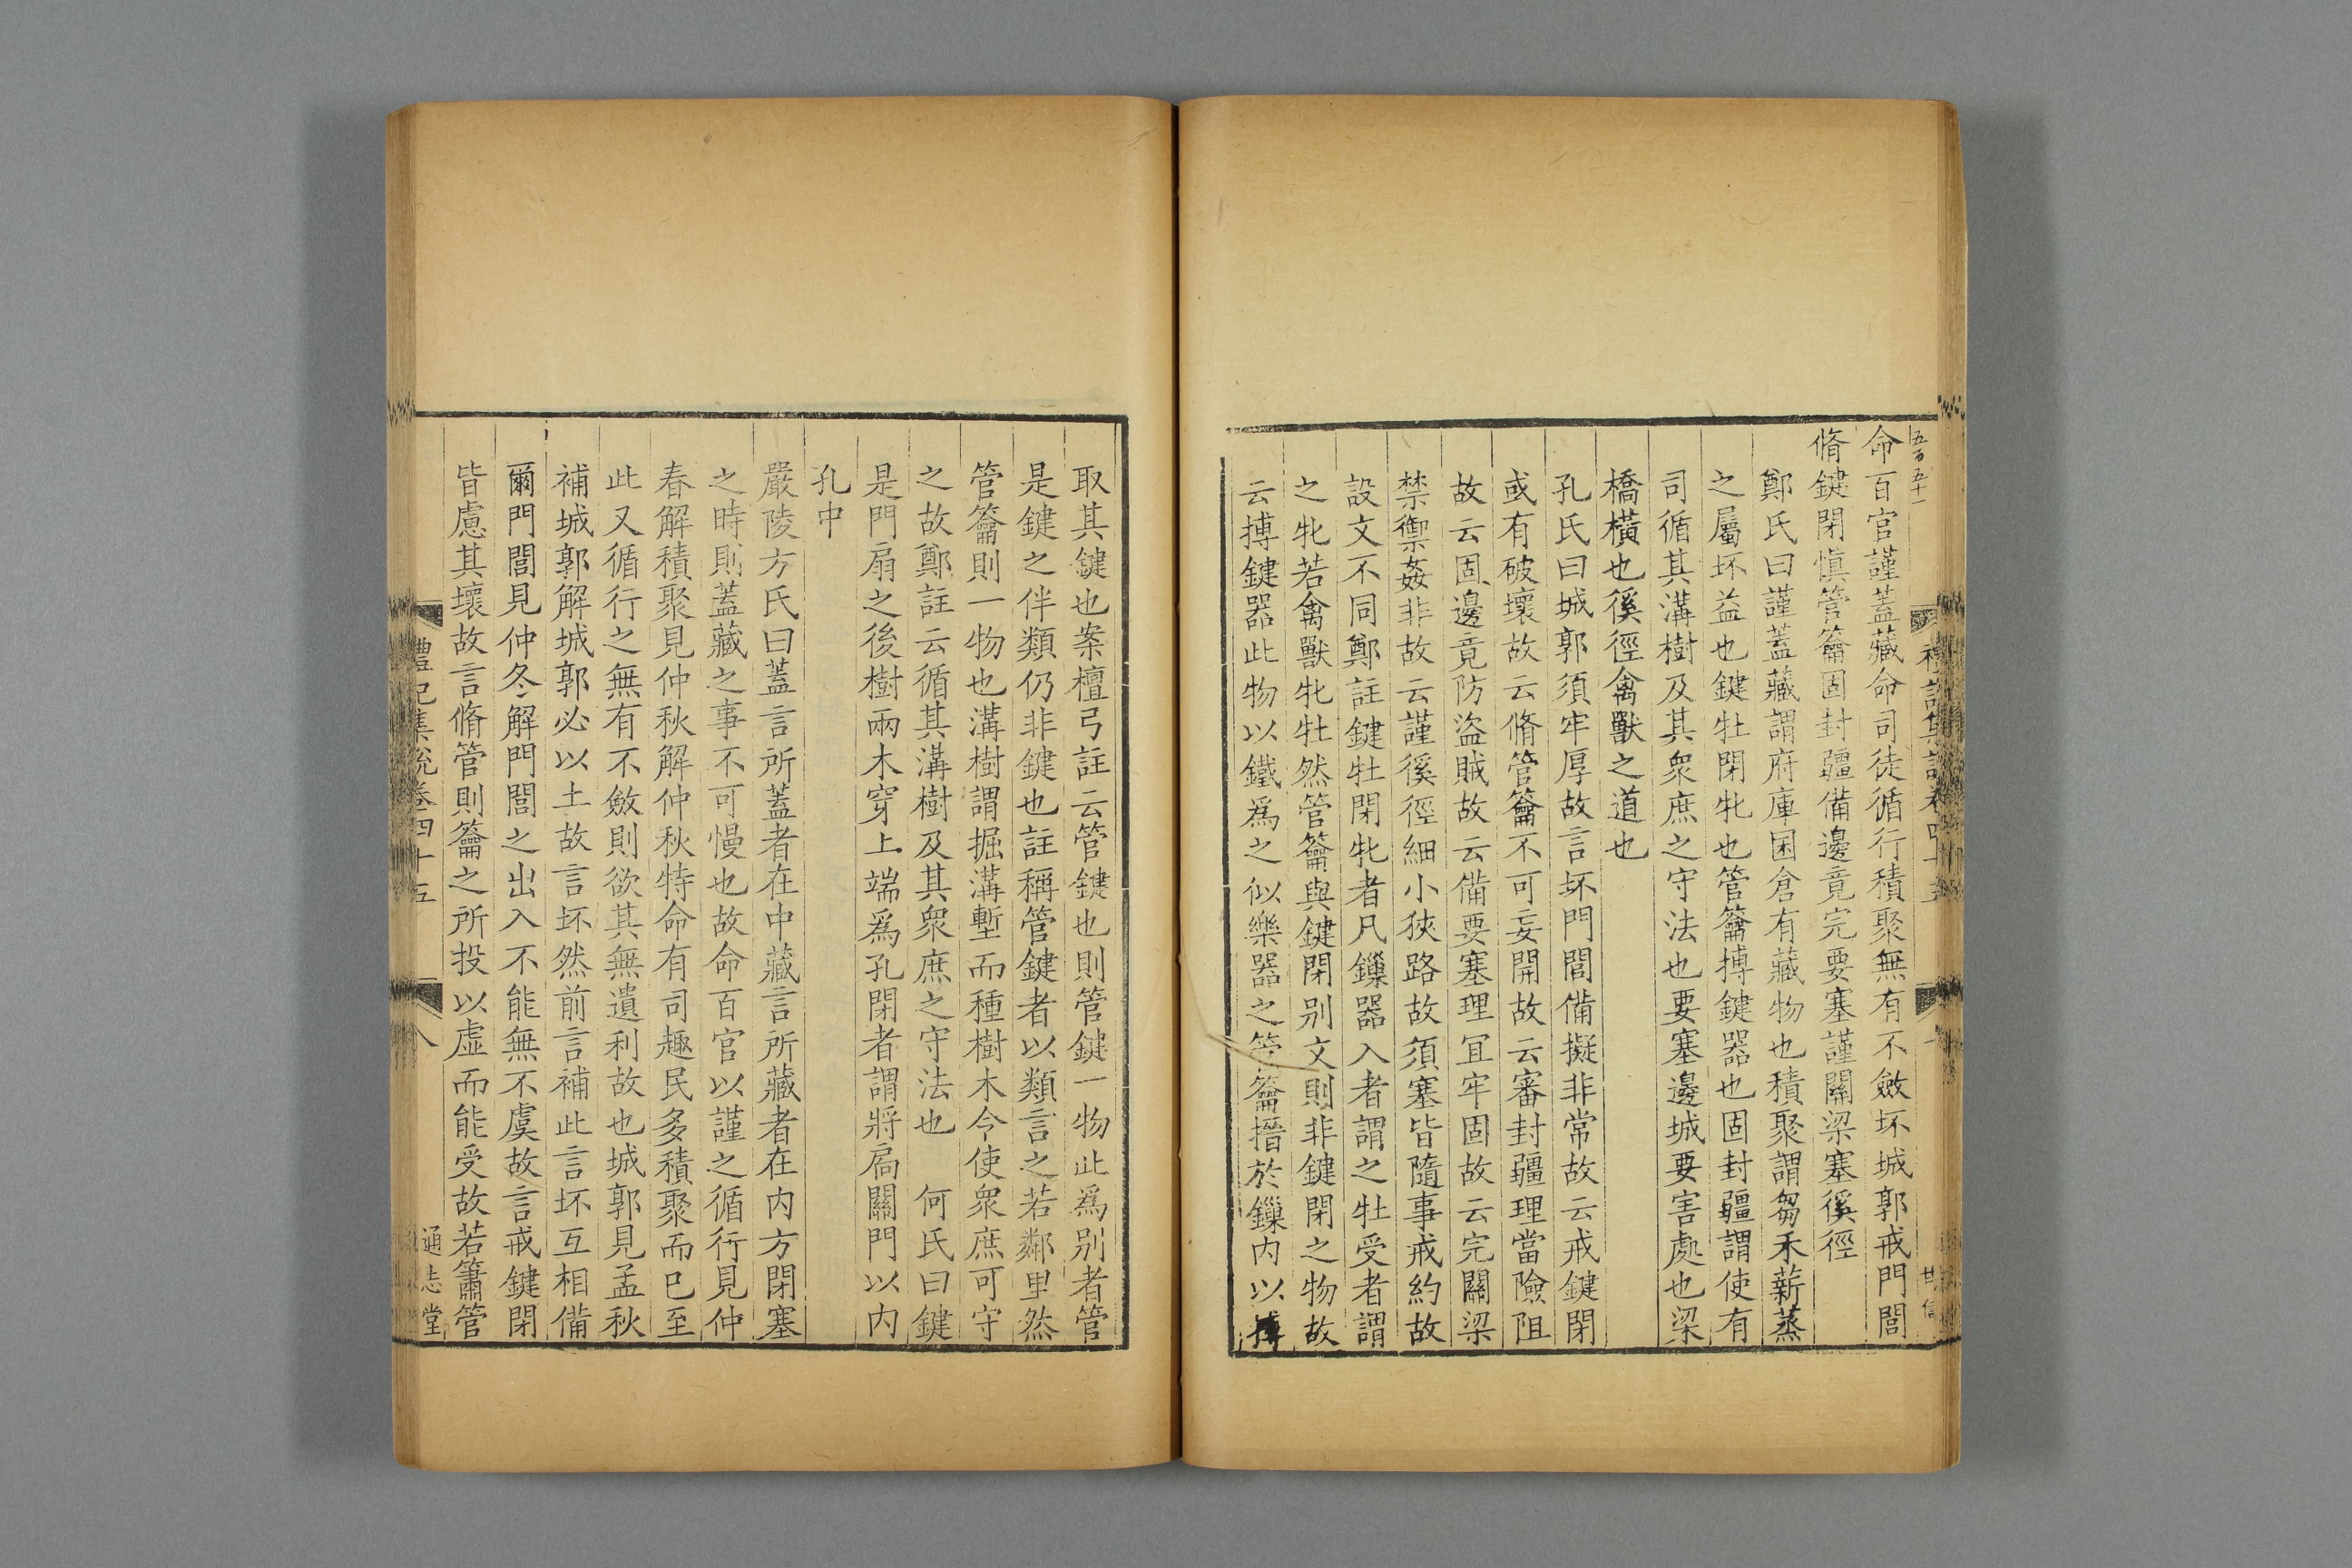 五百五十一
命百官謹蓋藏命司徒循行積聚無有不斂坏城郭戒門閭
脩鍵閉慎管籥固封疆備邊竟完要塞謹關梁塞徯徑
鄭氏曰謹蓋藏謂府庫囷倉有藏物也積聚謂芻禾薪蒸
之屬坏益也鍵牡閉牝也管籥搏鍵器也固封疆謂使有
司循其溝樹及其衆庶之守法也要塞邊城要害處也梁
橋橫也徯徑禽獸之道也
孔氏曰城郭須牢厚故言坏門閭備擬非常故云戒鍵閉
或有破壞故云脩管籥不可妄開故云審封疆理當險阻
故云固邊竟防盜賊故云備要塞理宜牢固故云完關梁
禁禦姦非故云謹徯徑細小狹路故須塞皆隨事戒約故
設文不同鄭註鍵牡閉牝者凡鏁器入者謂之牡受者謂
之牝若禽獸牝牡然管籥與鍵閉别文則非鍵閉之物故
云搏鍵器此物以鐵爲之似樂器之管籥搢於鏁内以搏
取其鍵也案檀弓註云管鍵也則管鍵一物此爲别者管
是鍵之伴類仍非鍵也註稱管鍵者以類言之若鄰里然
管籥則一物也溝樹謂掘溝塹而種樹木今使衆庶可守
之故鄭註云循其溝樹及其衆庶之守法也　何氏曰鍵
是門扇之後樹兩木穿上端爲孔閉者謂將扃關門以内
孔中
嚴陵方氏曰蓋言所蓋者在中藏言所藏者在内方閉塞
之時則蓋藏之事不可慢也故命百官以謹之循行見仲
春解積聚見仲秋解仲秋特命有司趣民多積聚而已至
此又循行之無有不斂則欲其無遺利故也城郭見孟秋
補城郭解城郭必以土故言坏然前言補此言坏互相備
爾門閭見仲冬解門閭之出入不能無不虞故言戒鍵閉
皆慮其壞故言脩管則籥之所投以虛而能受故若簫管
禮記集說卷四十五
八
通志堂